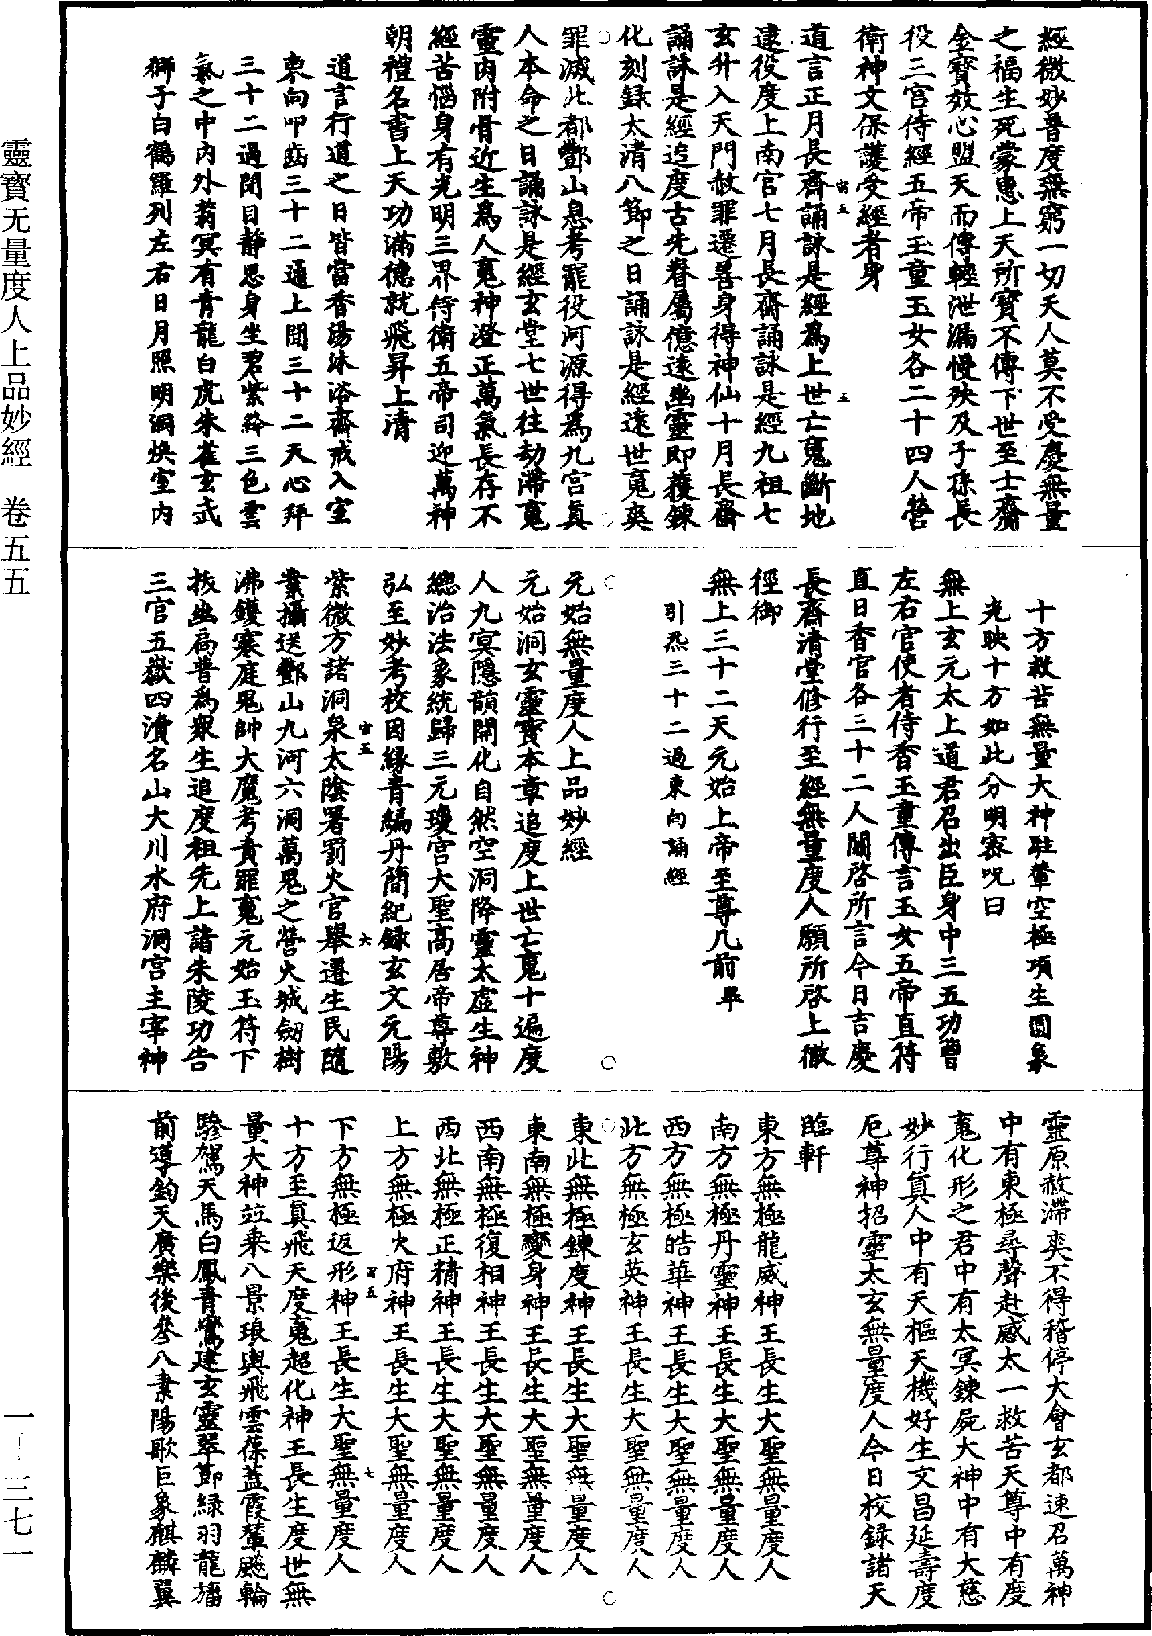 靈寶无量度人上品妙經 卷五五
一－三七一
經微妙普度無窮一切天人莫不受慶無量
之福生死蒙惠上天所寶不傳下世至士齎
金寶效心盟天而傳輕泄漏慢殃及子孫長
役三官侍經五帝玉童玉女各二十四人營
衛神文保護受經者身
道言正月長齋誦詠是經爲上世亡魂斷地
逮役度上南宮七月長齋誦詠是經九祖七
玄升入天門赦罪遷善身得神仙十月長齋
誦詠是經追度古先眷屬億遠幽靈即獲鍊
化刻錄太清八節之日誦詠是經遠世魂爽
罪滅北都酆山息考罷役河源得爲九宮真
人本命之日誦詠是經玄堂七世往劫滯魂
靈肉附骨近生爲人魂神澄正萬氣長存不
經苦惱身有光明三界侍衛五帝司迎萬神
朝禮名書上天功滿德就飛昇上清
道言行道之日皆當香湯沐浴齋戒入室
東向叩齒三十二通上聞三十二天心拜
三十二過閉目靜思身坐碧紫絳三色雲
氣之中內外蓊冥有青龍白虎朱雀玄武
獅子白鶴羅列左右日月照明洞煥室內
十方救苦無量大神駐輦空極項生圓象
光映十方如此分明密呪曰
無上玄元太上道君召出臣身中三五功曹
左右官使者侍香玉童傳言玉女五帝直符
直日香官各三十二人關啓所言今日吉慶
長齋清堂修行至經無量度人願所啓上徹
徑御
無上三十二天元始上帝至尊几前畢
引炁三十二過東向誦經
元始無量度人上品妙經
元始洞玄靈寶本章追度上世亡魂十遍度
人九冥隱韻開化自然空洞降靈太虛生神
總治法象統歸三元瓊宮大聖高居帝尊敷
弘至妙考校因緣青編丹簡紀錄玄文元陽
紫微方諸洞泉太陰署罰火官舉遷生民隨
業攝送酆山九河六洞萬鬼之營火城劒樹
沸鑊寒庭鬼帥大魔考責罪魂元始玉符下
拔幽扃普爲衆生追度祖先上諸朱陵功告
三官五嶽四瀆名山大川水府洞宮主宰神
靈原赦滯爽不得稽停大會玄都速召萬神
中有東極尋聲赴感太一救苦天尊中有度
魂化形之君中有太冥鍊屍大神中有大慈
妙行真人中有天樞天機好生文昌延壽度
厄尊神招靈太玄無量度人今日校錄諸天
臨軒
東方無極龍威神王長生大聖無量度人
南方無極丹靈神王長生大聖無量度人
西方無極皓華神王長生大聖無量度人
北方無極玄英神王長生大聖無量度人
東北無極鍊度神王長生大聖無量度人
東南無極變身神王長生大聖無量度人
西南無極復相神王長生大聖無量度人
西北無極正精神王長生大聖無量度人
上方無極火府神王長生大聖無量度人
下方無極返形神王長生大聖無量度人
十方至真飛天度魂超化神王長生度世無
量大神竝乘八景琅輿飛雲葆蓋霞輦飈輪
驂駕天馬白鳳青鸞建玄靈翠節綠羽龍旛
前導鈞天廣樂後參八素陽歌巨象麒麟翼